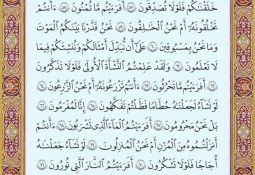 خَلَقْنَٰكُمْ فَلَوْلَا تُصَدِّقُونَ ۝٥٧ أَفَرَءَيْتُم مَّا تُمْنُونَ ۝٥٨ ءَأَنتُمْ
تَخْلُقُونَهُۥٓ أَمْ نَحْنُ ٱلْخَٰلِقُونَ ۝٥٩ نَحْنُ قَدَّرْنَا بَيْنَكُمُ ٱلْمَوْتَ
وَمَا نَحْنُ بِمَسْبُوقِينَ ۝٦٠ عَلَىٰٓ أَن نُّبَدِّلَ أَمْثَٰلَكُمْ وَنُنشِئَكُمْ فِى مَا
لَا تَعْلَمُونَ ۝٦١ وَلَقَدْ عَلِمْتُمُ ٱلنَّشْأَةَ ٱلْأُولَىٰ فَلَوْلَا تَذَكَّرُونَ
۝٦٢ أَفَرَءَيْتُم مَّا تَحْرُثُونَ ۝٦٣ ءَأَنتُمْ تَزْرَعُونَهُۥٓ أَمْ نَحْنُ ٱلزَّٰرِعُونَ ۝٦٤
لَوْ نَشَآءُ لَجَعَلْنَٰهُ حُطَٰمًا فَظَلْتُمْ تَفَكَّهُونَ ۝٦٥ إِنَّا لَمُغْرَمُونَ ۝٦٦
بَلْ نَحْنُ مَحْرُومُونَ ۝٦٧ أَفَرَءَيْتُمُ ٱلْمَآءَ ٱلَّذِى تَشْرَبُونَ ۝٦٨ ءَأَنتُمْ
أَنزَلْتُمُوهُ مِنَ ٱلْمُزْنِ أَمْ نَحْنُ ٱلْمُنزِلُونَ ۝٦٩ لَوْ نَشَآءُ جَعَلْنَٰهُ
أُجَاجًا فَلَوْلَا تَشْكُرُونَ ۝٧٠ أَفَرَءَيْتُمُ ٱلنَّارَ ٱلَّتِى تُورُونَ ۝٧١